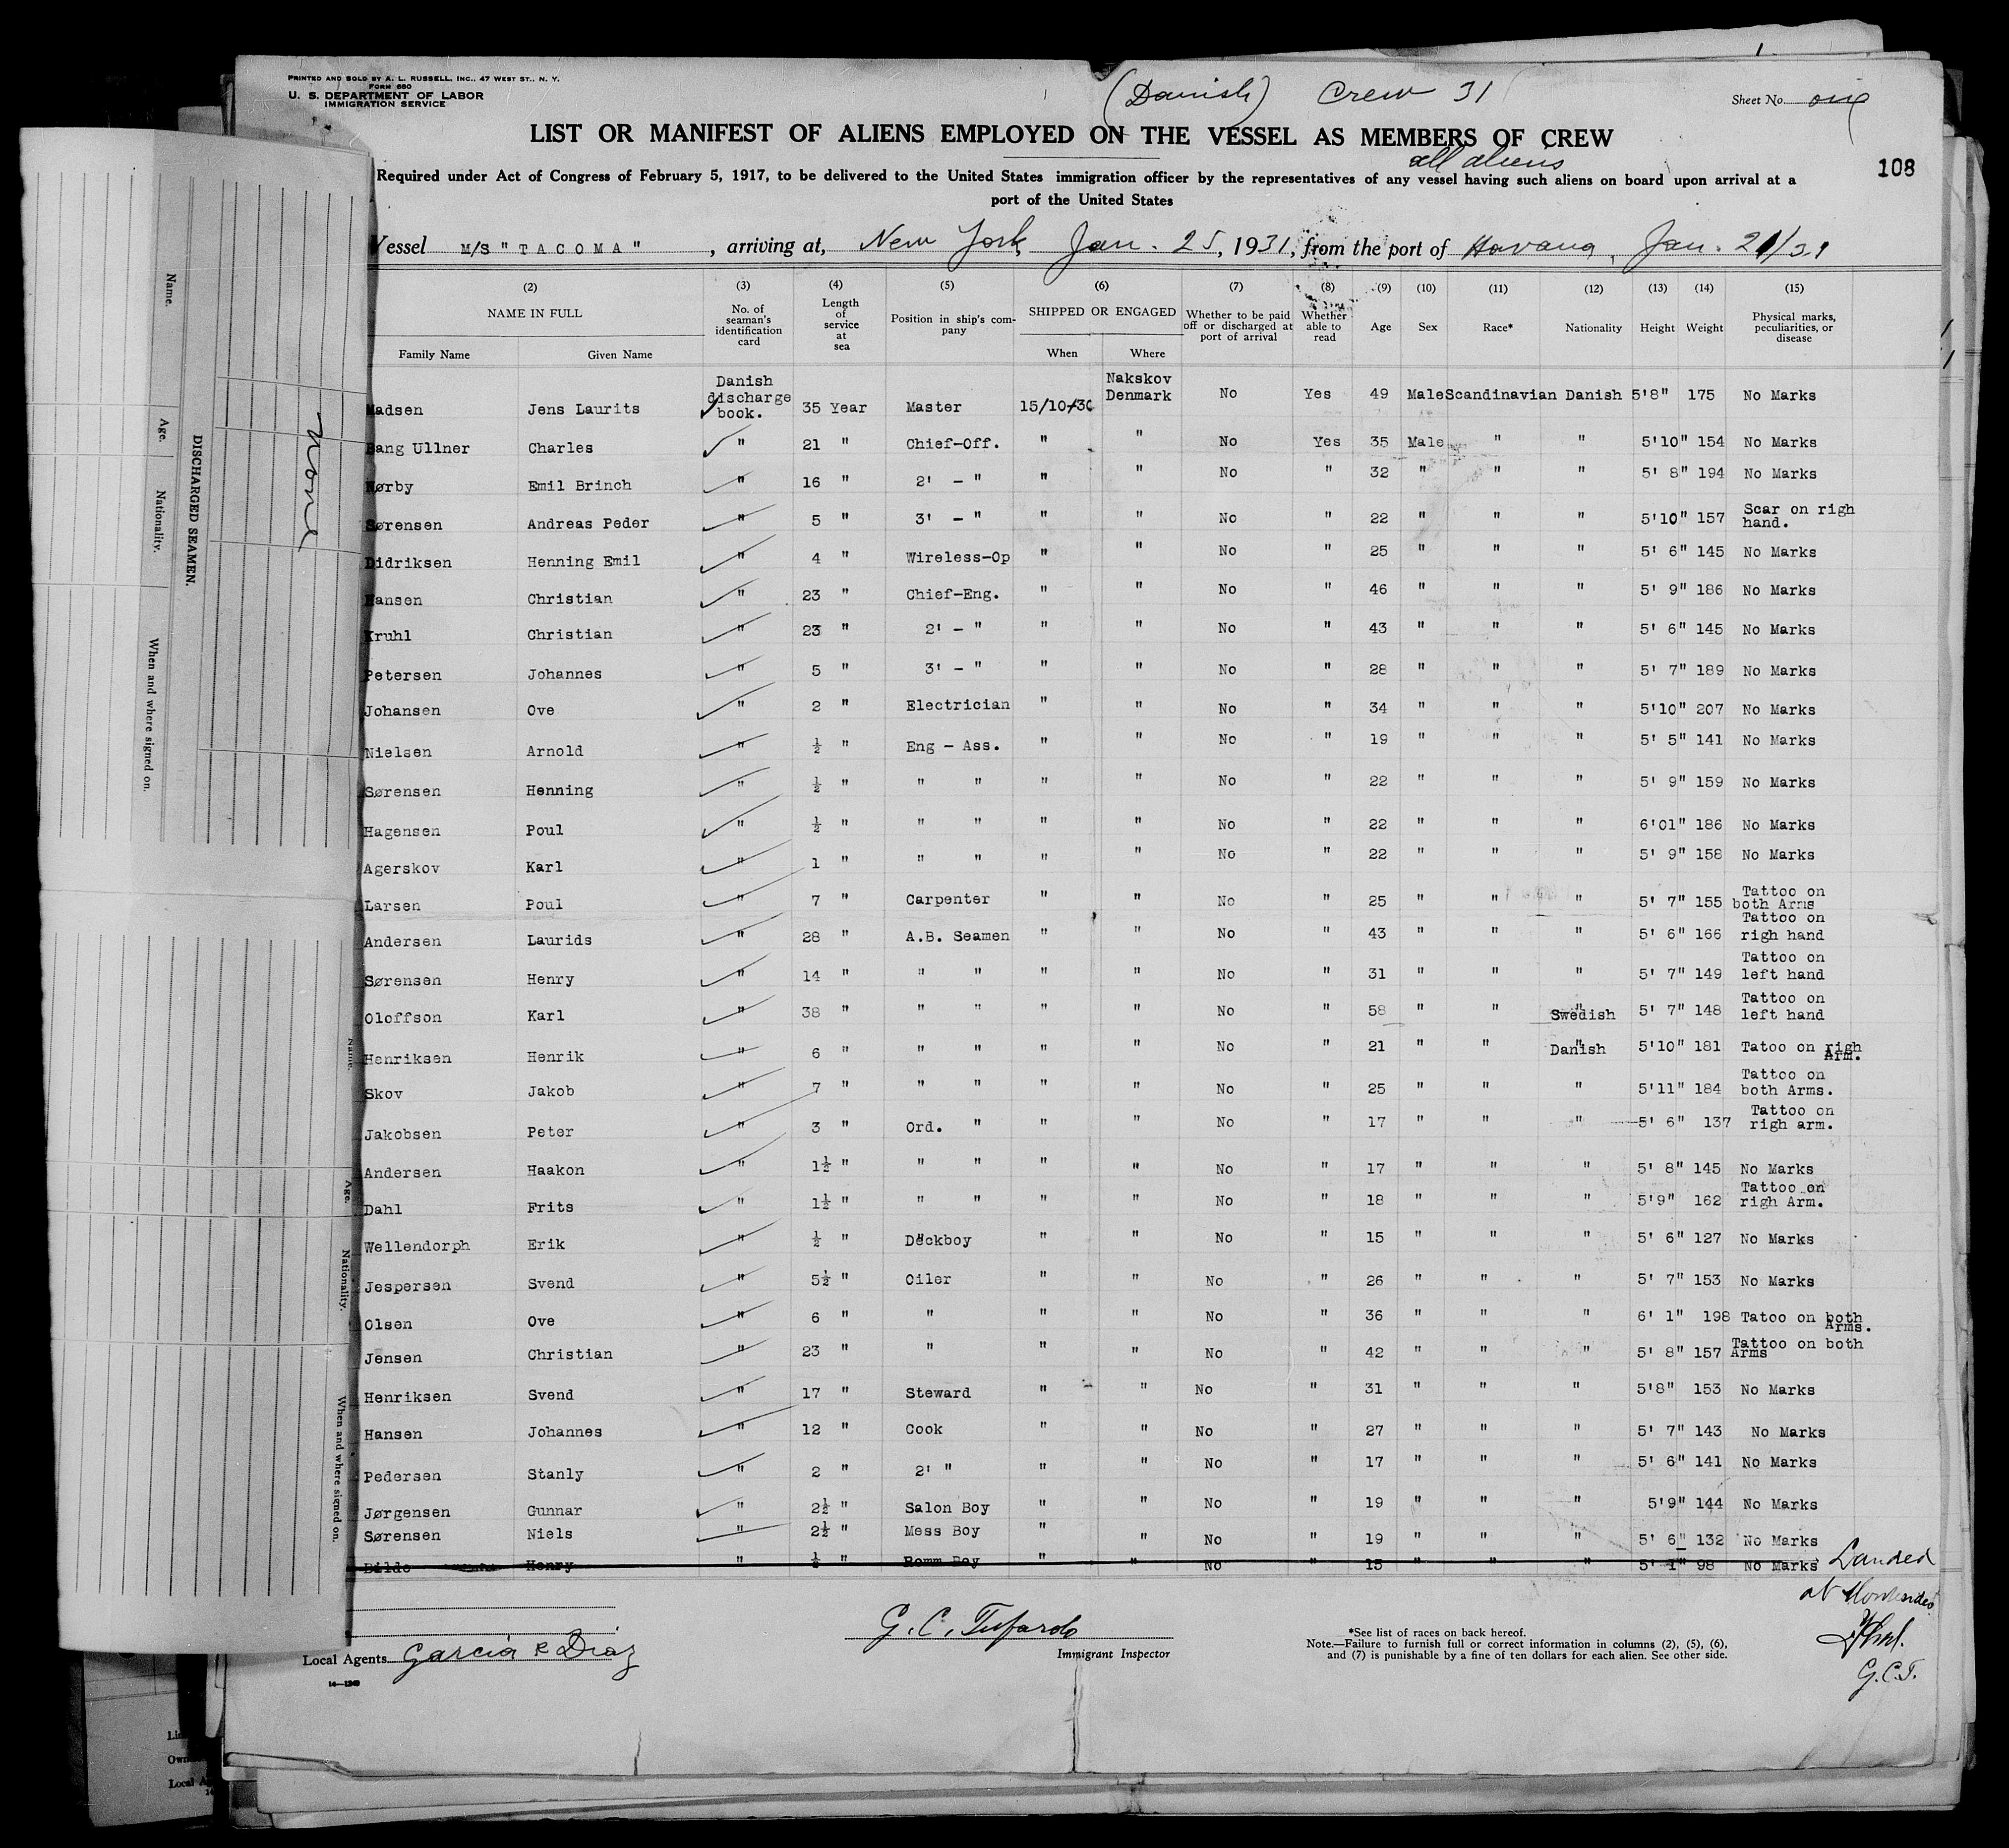 PRINTED AND SOLD BY A. L. RUSSELL, INC., 47 WEST ST., N. Y.
FORM 680
U. S. DEPARTMENT OF LABOR
IMMIGRATION SERVICE
(Danish) Crew 31
Sheet No. one
LIST OR MANIFEST OF ALIENS EMPLOYED ON THE VESSEL AS MEMBERS OF CREW
all aliens
108
Required under Act of Congress of February 5, 1917, to be delivered to the United States immigration officer by the representatives of any vessel having such aliens on board upon arrival at a
port of the United States
Vessel M/S "TACOMA", arriving at, New York, Jan. 25, 1931, from the port of Havana, Jan. 21/31
(2) (3) (4) (5) (6) (7) (8) (9) (10) (11) (12) (13) (14) (15)
NAME IN FULL
Family Name Given Name
No. of seaman's identification card
Length of service at sea
Position in ship's company
SHIPPED OR ENGAGED
When Where
Whether to be paid off or discharged at port of arrival
Whether able to read
Age Sex Race* Nationality Height Weight
Physical marks, peculiarities, or disease
Madsen Jens Laurits Danish discharge book. 35 Year Master 15/10-30 Nakskov Denmark No Yes 49 Male Scandinavian Danish 5'8" 175 No Marks
Bang Ullner Charles " 21 " Chief-Off. " " No Yes 35 Male " " 5'10" 154 No Marks
Nørby Emil Brinch " 16 " 2' - " " " No " 32 " " " 5' 8" 194 No Marks
Sørensen Andreas Peder " 5 " 3' - " " " No " 22 " " " 5'10" 157 Scar on righ hand.
Didriksen Henning Emil " 4 " Wireless-Op " " No " 25 " " " 5' 6" 145 No Marks
Hansen Christian " 23 " Chief-Eng. " " No " 46 " " " 5' 9" 186 No Marks
Kruhl Christian " 23 " 2' - " " " No " 43 " " " 5' 6" 145 No Marks
Petersen Johannes " 5 " 3' - " " " No " 28 " " " 5' 7" 189 No Marks
Johansen Ove " 2 " Electrician " " No " 34 " " " 5'10" 207 No Marks
Nielsen Arnold " ½ " Eng - Ass. " " No " 19 " " " 5' 5" 141 No Marks
Sørensen Henning " ½ " " " " " No " 22 " " " 5' 9" 159 No Marks
Hagensen Poul " ½ " " " " " No " 22 " " " 6'01" 186 No Marks
Agerskov Karl " 1 " " " " " No " 22 " " " 5' 9" 158 No Marks
Larsen Poul " 7 " Carpenter " " No " 25 " " " 5' 7" 155 Tattoo on both Arms
Andersen Laurids " 28 " A.B. Seamen " " No " 43 " " " 5' 6" 166 Tattoo on righ hand
Sørensen Henry " 14 " " " " " No " 31 " " " 5' 7" 149 Tattoo on left hand
Oloffson Karl " 38 " " " " " No " 58 " " " Swedish 5' 7" 148 Tattoo on left hand
Henriksen Henrik " 6 " " " " " No " 21 " " " Danish 5'10" 181 Tatoo on righ Arm.
Skov Jakob " 7 " " " " " No " 25 " " " 5'11" 184 Tattoo on both Arms.
Jakobsen Peter " 3 " Ord. " " " No " 17 " " " 5' 6" 137 Tattoo on righ arm.
Andersen Haakon " 1½ " " " " " No " 17 " " " 5' 8" 145 No Marks
Dahl Frits " 1½ " " " " " No " 18 " " " 5'9" 162 Tattoo on righ Arm.
Wellendorph Erik " ½ " Deckboy " " No " 15 " " " 5' 6" 127 No Marks
Jespersen Svend " 5½ " Oiler " " No " 26 " " " 5' 7" 153 No Marks
Olsen Ove " 6 " " " " No " 36 " " " 6' 1" 198 Tatoo on both Arms.
Jensen Christian " 23 " " " " No " 42 " " " 5' 8" 157 Tattoo on both Arms
Henriksen Svend " 17 " Steward " " No " 31 " " " 5'8" 153 No Marks
Hansen Johannes " 12 " Cook " " No " 27 " " " 5' 7" 143 No Marks
Pedersen Stanly " 2 " 2' " " " No " 17 " " " 5' 6" 141 No Marks
Jørgensen Gunnar " 2½ " Salon Boy " " No " 19 " " " 5'9" 144 No Marks
Sørensen Niels " 2½ " Mess Boy " " No " 19 " " " 5' 6" 132 No Marks
Bilde Henry " ½ " Romm Boy " " No " 15 " " " 5' 1" 98 No Marks Landed
at Montevideo
G.C.T.
Local Agents Garcia & Diaz
14—1240
G. C. Tufardo
Immigrant Inspector
*See list of races on back hereof.
Note.—Failure to furnish full or correct information in columns (2), (5), (6),
and (7) is punishable by a fine of ten dollars for each alien. See other side.
DISCHARGED SEAMEN.
Name. Age. Nationality. When and where signed on.
None
Name. Age. Nationality. When and where signed on.